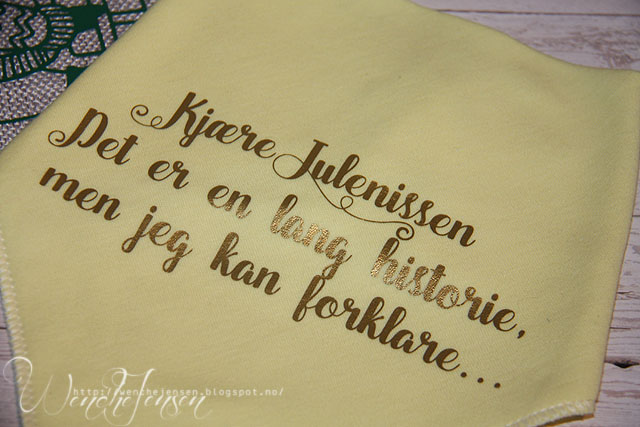 Kjære Julenissen
Det er en lang historie,
men jeg kan forklare...
http://wenchejensen.blogspot.no/
WencheJensen